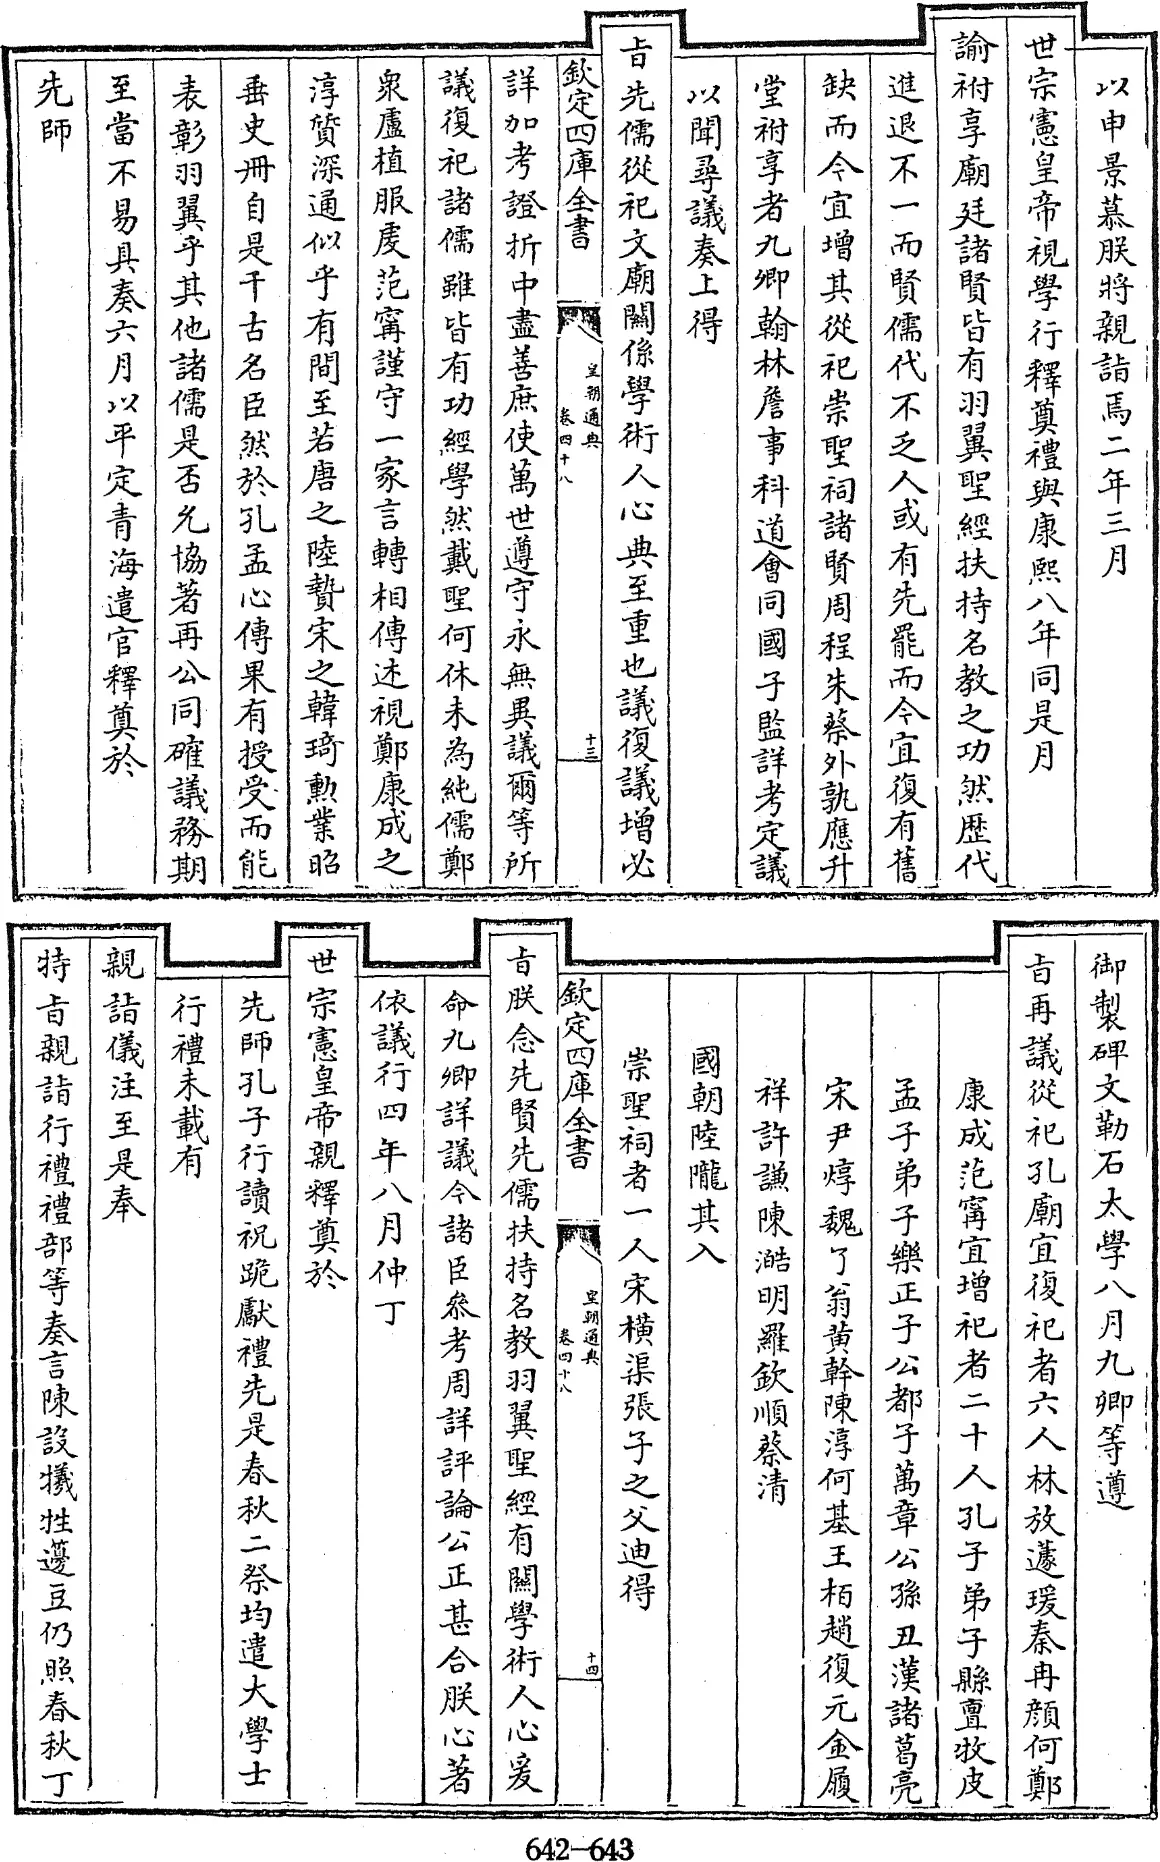 以申景慕朕將親詣焉二年三月
世宗憲皇帝視學行釋奠禮與康熙八年同是月
諭祔享廟廷諸賢皆有羽翼聖經扶持名教之功然歴代
進退不一而賢儒代不乏人或有先罷而今宜復有舊
缺而今宜增其從祀崇聖祠諸賢周程朱蔡外孰應升
堂祔享者九卿翰林詹事科道會同國子監詳考定議
以聞尋議奏上得
㫖先儒從祀文廟關係學術人心典至重也議復議增必
欽定四庫全書
皇朝通典
卷四十八
十三
詳加考證折中盡善庶使萬世遵守永無異議爾等所
議復祀諸儒雖皆有功經學然戴聖何休未為純儒鄭
衆盧植服虔范甯謹守一家言轉相傳述視鄭康成之
淳質深通似乎有間至若唐之陸贄宋之韓琦勲業昭
垂史冊自是千古名臣然於孔孟心傳果有授受而能
表彰羽翼乎其他諸儒是否允協著再公同確議務期
至當不易具奏六月以平定青海遣官釋奠於
先師
御製碑文勒石太學八月九卿等遵
㫖再議從祀孔廟宜復祀者六人林放蘧瑗秦冉顔何鄭
康成范甯宜增祀者二十人孔子弟子縣亶牧皮
孟子弟子樂正子公都子萬章公孫丑漢諸葛亮
宋尹焞魏了翁黄幹陳淳何基王柏趙復元金履
祥許謙陳澔明羅欽順蔡清
國朝陸隴其入
崇聖祠者一人宋橫渠張子之父迪得
欽定四庫全書
皇朝通典
卷四十八
十四
㫖朕念先賢先儒扶持名教羽翼聖經有關學術人心爰
命九卿詳議今諸臣叅考周詳評論公正甚合朕心著
依議行四年八月仲丁
世宗憲皇帝親釋奠於
先師孔子行讀祝跪獻禮先是春秋二祭均遣大學士
行禮未載有
親詣儀注至是奉
特㫖親詣行禮禮部等奏言陳設犧牲籩豆仍照春秋丁
642-643